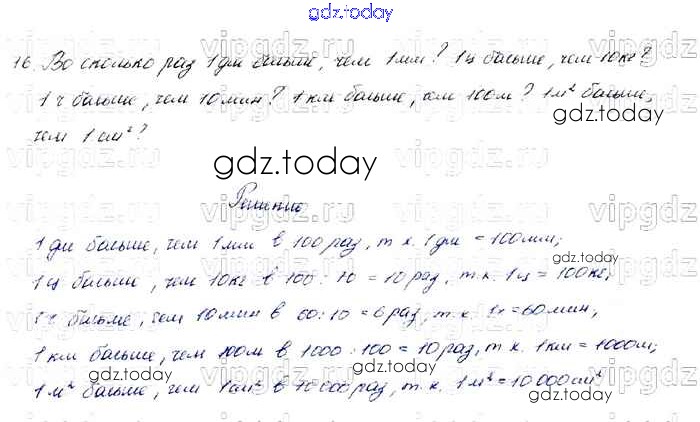 gdz.today
16. Во сколько раз 1 дм больше, чем 1 мм? 1 ц больше, чем 10 кг?
1 ч больше, чем 10 мин? 1 км больше, чем 100 м? 1 м² больше,
чем 1 см²?
gdz.today
Решение
1 дм больше, чем 1 мм в 100 раз, т. к. 1 дм = 100 мм;
gdz.today
1 ц больше, чем 10 кг в 100 : 10 = 10 раз, т. к. 1 ц = 100 кг;
1 ч больше, чем 10 мин в 60 : 10 = 6 раз, т. к. 1 ч = 60 мин;
1 км больше, чем 100 м в 1000 : 100 = 10 раз, т. к. 1 км = 1000 м;
gdz.today
gdz.today
1 м² больше, чем 1 см² в 10 000 раз, т. к. 1 м² = 10 000 см²
vipgdz.ru